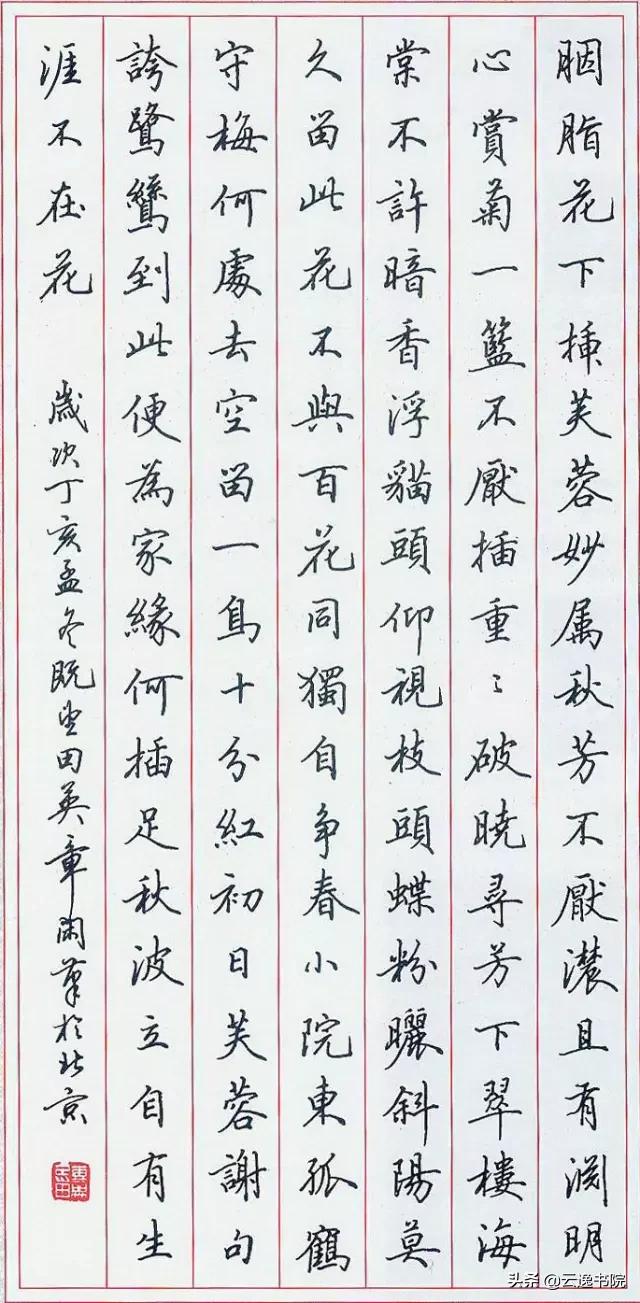 胭脂花下插芙蓉妙属秋芳不厭濃且有渊明
心賞菊一籃不厭插重〻破曉尋芳下翠樓海
棠不許暗香浮貓頭仰視枝頭蝶粉曬斜陽莫
久留此花不與百花同獨自争春小院東孤鶴
守梅何處去空留一鳥十分紅初日芙蓉謝句
誇鷺鷥到此便為家緣何插足秋波立自有生
涯不在花
歲次丁亥孟冬既望田英章閑筆於北京
头条@云逸书院